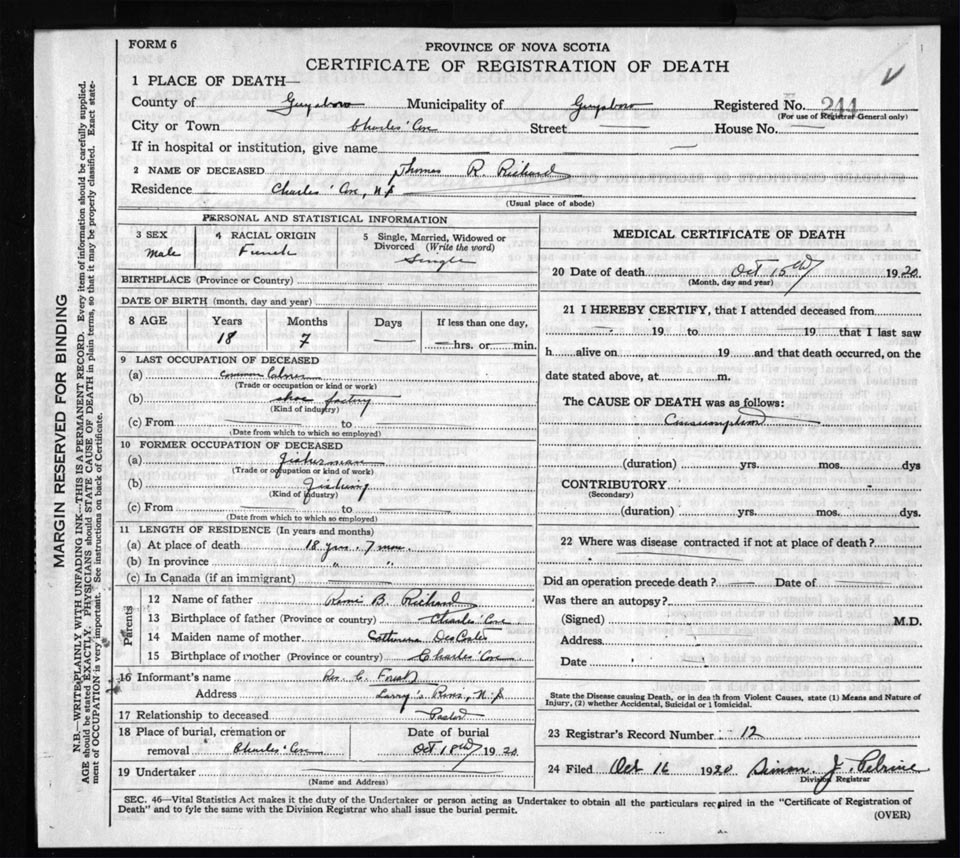 FORM 6
PROVINCE OF NOVA SCOTIA
CERTIFICATE OF REGISTRATION OF DEATH
1 PLACE OF DEATH—
County of Guysboro Municipality of Guysboro Registered No. 244
(For use of Registrar General only)
City or Town Charles' Cove Street House No.
If in hospital or institution, give name
2 NAME OF DECEASED Thomas R. Richard
Residence Charles' Cove, N.S.
(Usual place of abode)
PERSONAL AND STATISTICAL INFORMATION
3 SEX Male
4 RACIAL ORIGIN French
5 Single, Married, Widowed or Divorced (Write the word) Single
BIRTHPLACE (Province or Country)
DATE OF BIRTH (month, day and year)
8 AGE Years 18 Months 7 Days If less than one day, hrs. or min.
9 LAST OCCUPATION OF DECEASED
(a) Common Laborer
(Trade or occupation or kind or work)
(b) shoe factory
(Kind of industry)
(c) From to
(Date from which to which so employed)
10 FORMER OCCUPATION OF DECEASED
(a) Fisherman
(Trade or occupation or kind of work)
(b) Fishing
(Kind of industry)
(c) From to
(Date from which to which so employed)
11 LENGTH OF RESIDENCE (In years and months)
(a) At place of death 18 yrs. 7 mos.
(b) In province " "
(c) In Canada (if an immigrant)
Parents
12 Name of father Remi B. Richard
13 Birthplace of father (Province or country) Charles' Cove
14 Maiden name of mother
15 Birthplace of mother (Province or country) Charles' Cove
16 Informant's name Rev. C. Forest
Address Larry's River, N.S.
17 Relationship to deceased Pastor
18 Place of burial, cremation or removal Charles' Cove Date of burial Oct 18th 1920
19 Undertaker
(Name and Address)
MEDICAL CERTIFICATE OF DEATH
20 Date of death Oct 15th 1920
(Month, day and year)
21 I HEREBY CERTIFY, that I attended deceased from
19 to 19 that I last saw
h alive on 19 and that death occurred, on the
date stated above, at m.
The CAUSE OF DEATH was as follows:
Consumption
(duration) yrs. mos. dys
CONTRIBUTORY
(Secondary)
(duration) yrs. mos. dys.
22 Where was disease contracted if not at place of death?
Did an operation precede death? Date of
Was there an autopsy?
(Signed) M.D.
Address
Date
State the Disease causing Death, or in death from Violent Causes, state (1) Means and Nature of
Injury, (2) whether Accidental, Suicidal or Homicidal.
23 Registrar's Record Number 12
24 Filed Oct 16 1920 Simon J. Pelrine
Division Registrar
SEC. 46—Vital Statistics Act makes it the duty of the Undertaker or person acting as Undertaker to obtain all the particulars required in the "Certificate of Registration of
Death" and to fyle the same with the Division Registrar who shall issue the burial permit.
(OVER)
MARGIN RESERVED FOR BINDING
N.B.—WRITE PLAINLY WITH UNFADING INK—THIS IS A PERMANENT RECORD. Every item of information should be carefully supplied.
AGE should be stated EXACTLY. PHYSICIANS should STATE CAUSE OF DEATH in plain terms, so that it may be properly classified. Exact state-
ment of OCCUPATION is very important. See instructions on back of Certificate.